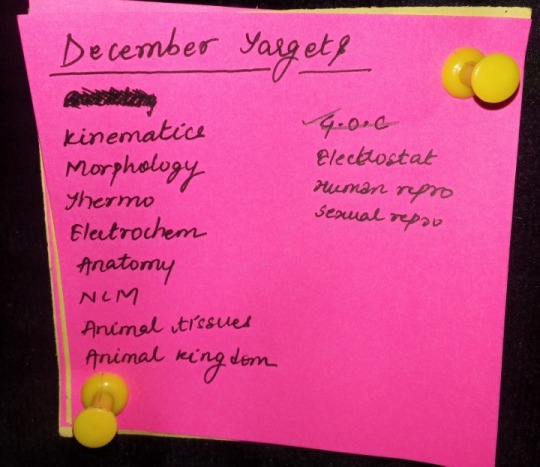 December Targets
Kinematics
Morphology
Thermo
Electrochem
Anatomy
NLM
Animal tissues
Animal kingdom
G.O.C
Electrostat
Human repro
Sexual repro